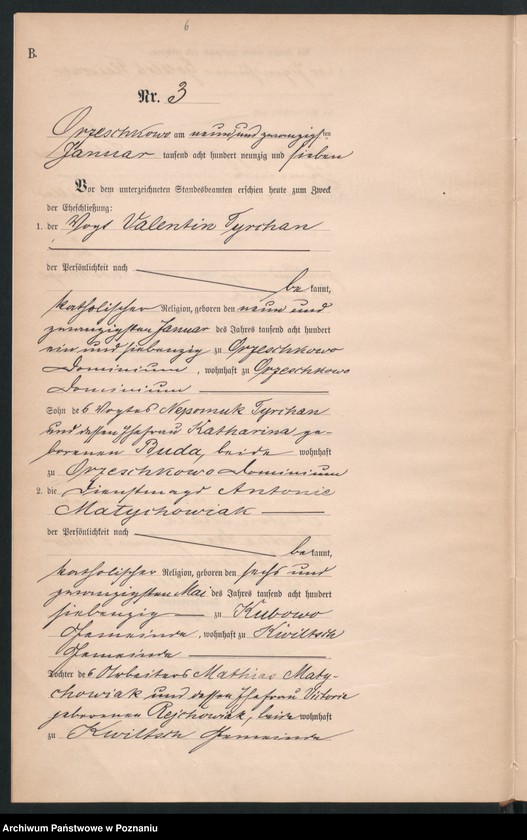 6
B.
Nr. 3
Orzeschkowo am neunundzwanzigsten
Januar tausend acht hundert neunzig und sieben
Vor dem unterzeichneten Standesbeamten erschien heute zum Zweck
der Eheschließung:
1. der Vogt Valentin Tyrchan
der Persönlichkeit nach
bekannt,
katholischer Religion, geboren den neun und
zwanzigsten Januar des Jahres tausend acht hundert
ein und siebenzig zu Orzeschkowo
Dominium, wohnhaft zu Orzeschkowo
Dominium
Sohn des Vogtes Nepomuk Tyrchan
und dessen Ehefrau Katharina ge-
borenen Buda, beide wohnhaft
zu Orzeschkowo Dominium
2. die Dienstmagd Antonie
Matychowiak
der Persönlichkeit nach
bekannt,
katholischer Religion, geboren den sechs und
zwanzigsten Mai des Jahres tausend acht hundert
siebenzig zu Kubowo
Gemeinde, wohnhaft zu Kwiltsch
Gemeinde
Tochter des Arbeiters Mathias Maty-
chowiak und dessen Ehefrau Victorie
geborenen Rejchowiak, beide wohnhaft
zu Kwiltsch Gemeinde
Archiwum Państwowe w Poznaniu